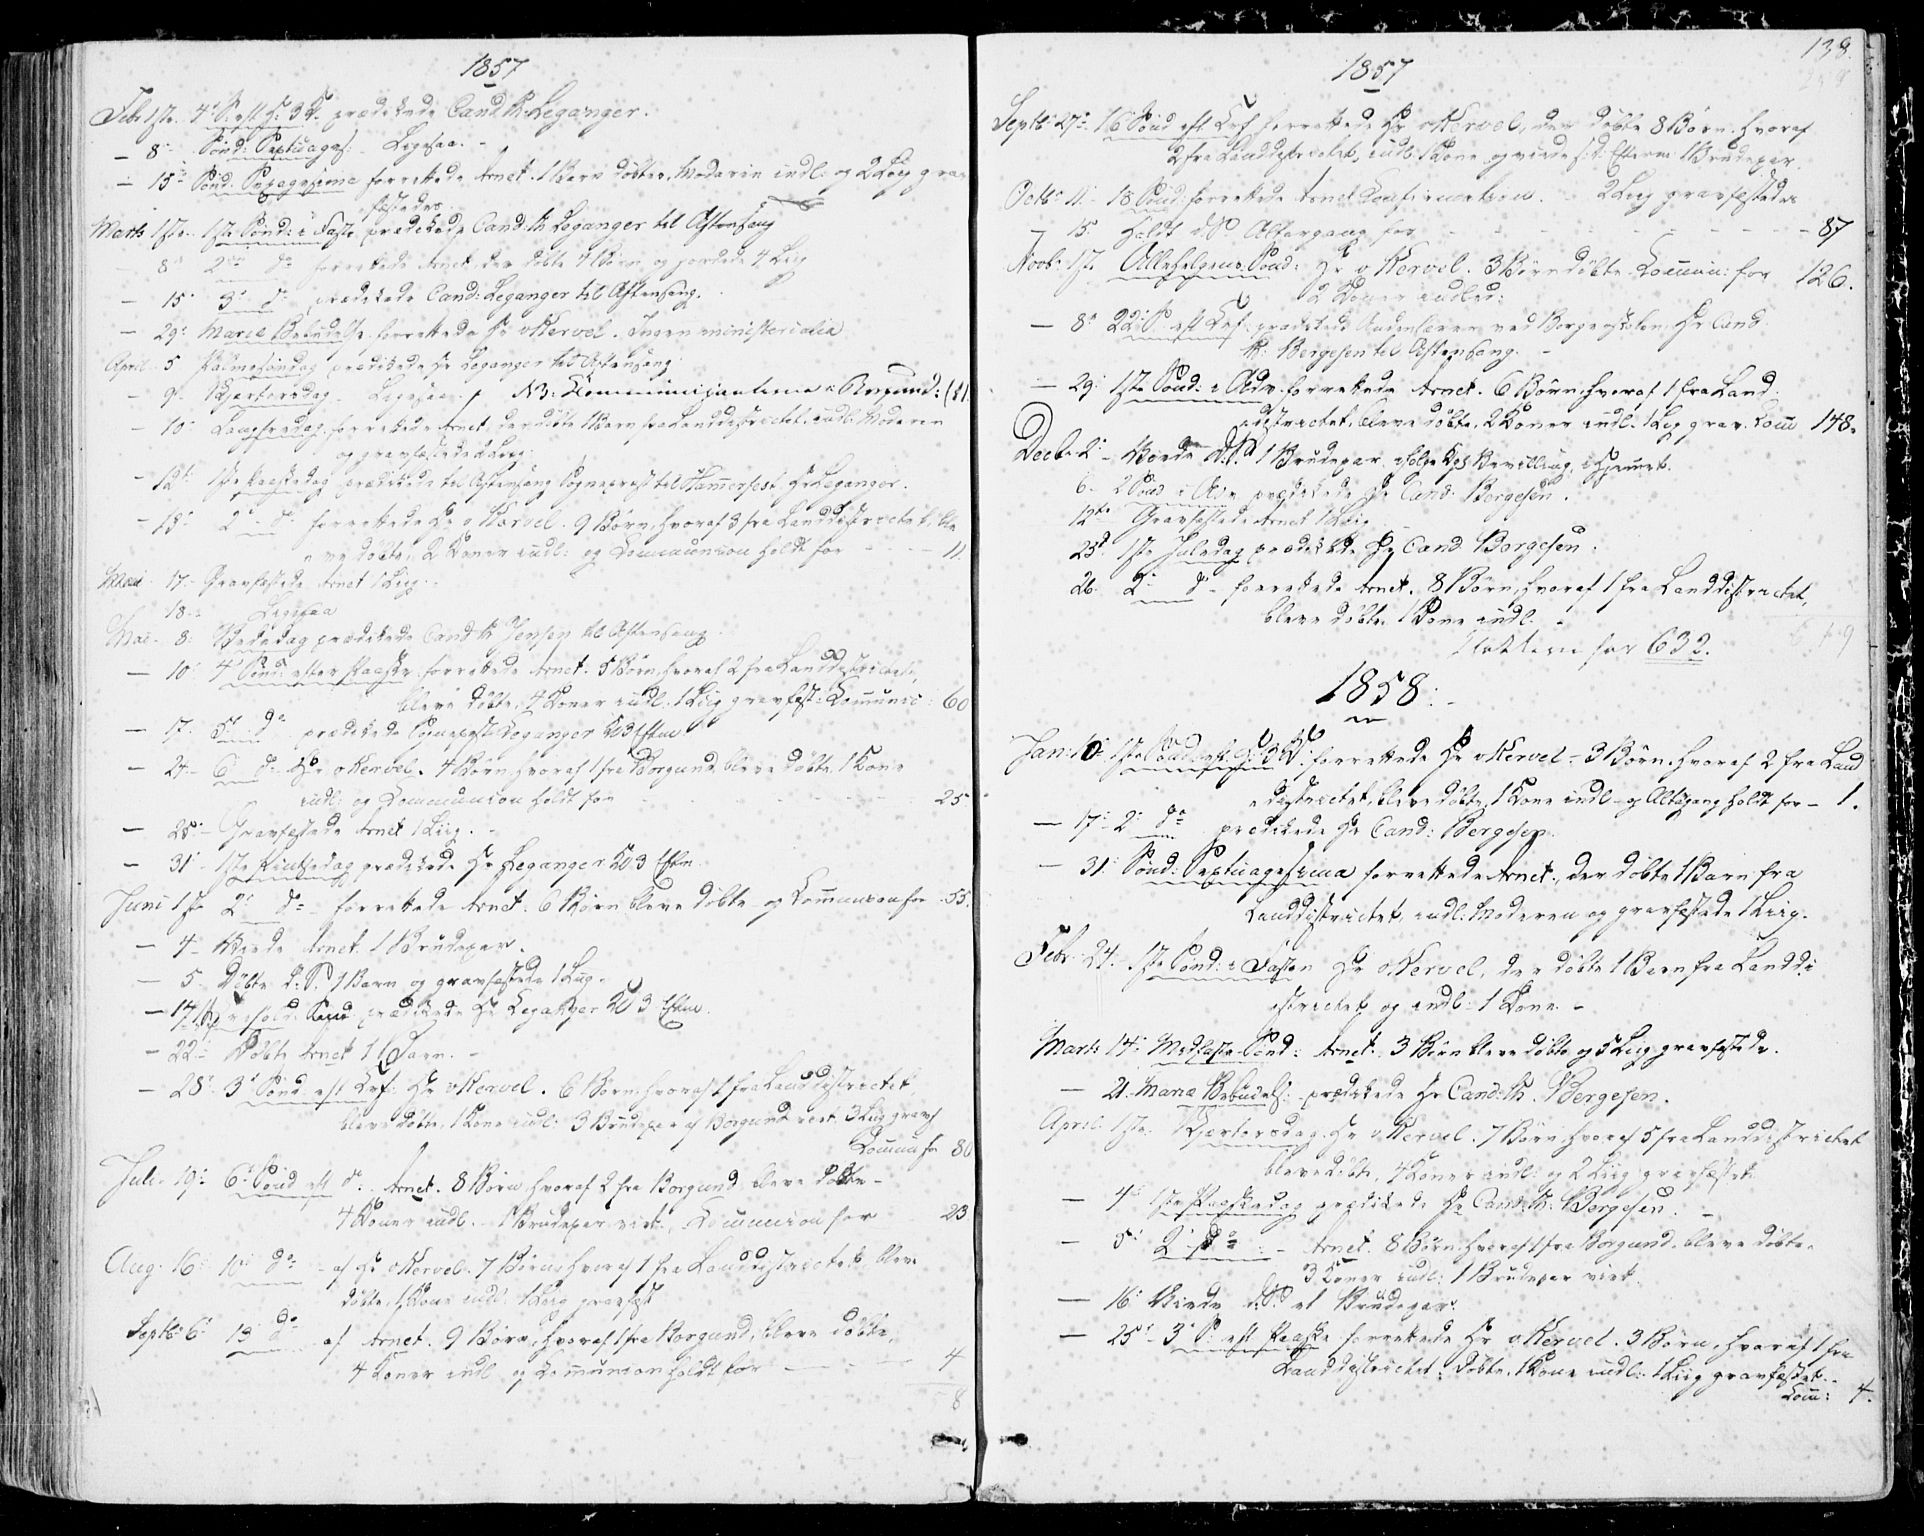 1857
Febr 1ste 4' S. eft H: 3 K. prædikede Cand. Th. Leganger.
— 8' Sønd: Septuages: Ligesaa. -
— 15' Sønd. Sexagesima forrettede Arnet. 1 Barn døbtes, Moderen indl: og 2 Liig grav-
fæstedes.
Marts 1ste 1ste Sønd: i Faste prædikede Cand: th Leganger til Aftensang
8' 2den do forrettede Arnet, der døbte 4 Børn og jordede 4 Liig
— 15' 3' do prædikede Cand: Leganger til Aftensang.
— 29' Mariæ Bebudelse forrettede Hr v Kervel. Ingen ministerialia
April. 5 Palmesøndag prædikede Hr Leganger til Aftensang.
— 9' Skjærtorsdag. Ligesaa. NB: Communicanterne i Borgund:
— 10' Langfredag forrettede Arnet, der døbte 1 Barn fra Landdistrictet, indl. Moderen
og gravfæstede 1 Liig.
— 12' 1ste Paaskedag prædikede til Aftensang Sognepræst til Hammerfest Hr Leganger.
— 13' 2' do forrettede Hr v Kervel. 9 Børn, hvoraf 3 fra Landdistrictet, ble-
ve døbte, 2 Koner indl: og Communion holdt for - - - 11.
17 Gravfæstede Arnet 1 Liig.
18 Ligesaa
Mai. 8' Bededag prædikede Cand th Jensen til Aftensang.
— 10' 4' Sønd: efter Paaske forrettede Arnet. 5 Børn, hvoraf 2 fra Landdistrictet,
bleve døbte, 4 Koner indl. 1 Liig gravfæst. Communic: 60
— 17. 5' do prædikede Sognepræst Leganger Kl 3 Eftm
— 24 6' do Hr v Kervel. 4 Børn, hvoraf 1 fra Borgund bleve døbte, 1 Kone
indl: og Communion holdt for 25
— 28' Gravfæstede Arnet 1 Liig. -
— 31' 1ste Pintsedag prædikede Hr Leganger Kl 3 Eftm.
Juni 1ste 2' do forrettede Arnet. 6 Børn bleve døbte og Communion for 55.
— 4 Viede Arnet 1 Brudepar.
— 5 Døbte d: S. 1 Barn og gravfæstede 1 Liig.
— 14 prædikede Hr Leganger Kl 3 Eftm.
— 22' Døbte Arnet 1 Barn. -
— 28' 3' Sønd. eft Trf: Hr v Kervel. 6 Børn, hvoraf 1 fra Landdistrictet,
bleve døbte, 1 Kone indl: 3 Brudepar af Borgund viet. 3 Liig gravf
Commun for 80
Juli. 19' 6' Sønd eft do. Arnet. 8 Børn hvoraf 2 fra Borgund bleve døbte -
4 Koner indl. 1 Brudepar viet. Communion for 23
Aug. 16' 10' do - af Hr v Kervel. 7 Børn, hvoraf 1 fra Landdistrictet, bleve
døbte, 1 Kone indl: 1 Liig gravfæst
Septb: 6' 13 do af Arnet. 9 Børn, hvoraf 1 fra Borgund, bleve døbte,
4 Koner indl og Communion holdt for — — — 4
8
138.
1857
Septb: 27' 16 Sønd eft Trf forrettede Hr v Kervel, der døbte 8 Børn, hvoraf
2 fra Landdistrictet, indl: 1 Kone og viede 1 Brudepar
Octbr 11' 18 Sønd: forrettede Arnet Confirmation. 2 Liig gravfæstedes
— 15. Holdt d.S. Altergang for - - - - - - 87
Novb: 1ste Allehelgens Sønd: Hr v Kervel. 3 Børn døbte. Commun: for 126.
2 Koner indled:
— 8' 22' S. eft Trf: prædikede Andenlærer ved Borgerskolen Hr Cand.
th: Bergesen til Aftensang. -
— 29' 1ste Sønd: i Adv. forrettede Arnet. 6 Børn, hvoraf 1 fra Land-
districtet, bleve døbte, 2 Koner indl. 1 Liig grav. Comm 148.
Decb. 2' - Viede d.S. 1 Brudepar ifølge Kgl Bevilling, i Hjemmet.
6 - 2 Sønd i Adv prædikede Hr Cand. Bergesen.
12te Gravfæstede Arnet 1 Liig
25' 1ste Juledag prædikede Hr Cand. Bergesen.
26. 2' do forrettede Arnet. 8 Børn, hvoraf 1 fra Landdistrictet,
bleve døbte. 1 Kone indl. -
for 632.
1858:
Jan: 10' 1ste Sønd: eft. H: 3 K: forrettede Hr v Kervel - 3 Børn, hvoraf 2 fra Land
districtet, bleve døbte, 1 Kone indl - og Altergang holdt for - 1.
— 17' 2' do prædikede Hr Cand: Bergesen.
— 31' Sønd: Septuagesima forrettede Arnet, der døbte 1 Barn fra
Landdistrictet, indl: Moderen og gravfæstede 1 Liig.
Febr. 24. 1ste Sønd: i Fasten Hr v Kervel, der døbte 1 Barn fra Landdi-
strictet og indl: 1 Kone. -
Marts 14' Midfaste-Sønd: Arnet. 3 Børn bleve døbte og 5 Liig gravfæstede.
— 21. Mariæ Bebudels: prædikede Hr Cand: th. Bergesen.
April: 1ste. Skjærtorsdag. Hr v Kervel. 7 Børn, hvoraf 5 fra Landdistrictet
bleve døbte, 4 Koner indl: og 2 Liig gravfæstet.
— 4' 1ste Paaskedag prædikede Hr Cand: th: Bergesen.
— 5' 2' do - Arnet. 8 Børn, hvoraf 1 fra Borgund, bleve døbte.
3 Koner indl: 1 Brudepar viet.
— 16' Viede d.S. et Brudepar.
— 25' 3' S. eft Paaske forrettede Hr v Kervel. 3 Børn, hvoraf 1 fra
Landdistrictet: døbte. 1 Kone indl: 1 Liig gravfæstet.
Com: 4.